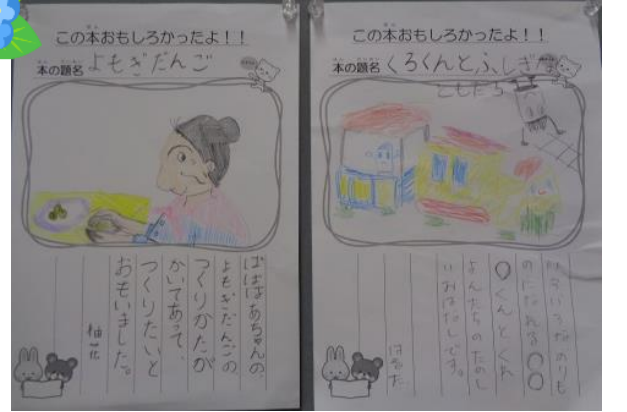 この本おもしろかったよ！！
本の題名 よもぎだんご
ばばばあちゃんの、
よもぎだんごの
つくりかたが
かいてあって、
つくりたいと
おもいました。
柚花
この本おもしろかったよ！！
本の題名 くろくんとふしぎな
ともだち
いろいろなのりも
のになれる○○
○くんとくれ
よんたちのたのし
いおはなしです。